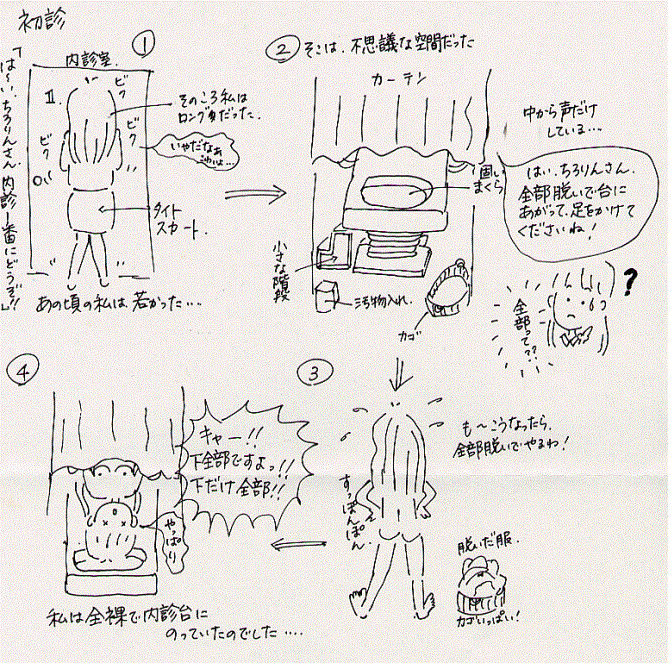 初診
①
「は〜い、ちろりんさん、内診1番にどうぞ!」
内診室.
II.
ビク
ビク
ビク
そのころ私は
ロング身だった.
いやだなぁ
タイト
スカート.
あの頃の私は若かった…
② そこは、不思議な空間だった
カーテン
中から声だけ
している…
固い
まくら
はい、ちろりんさん.
全部脱いで台に
あがって、足をかけて
くださいね!
小さな階段
汚物入れ.
カゴ
全部って??
?
③
も〜こうなったら、
全部脱いでやるわ!
すっぽんぽん
脱いだ服.
カゴいっぱい!
④
キャー!!
下全部ですよっ!!
下だけ全部!!
やっぱり
私は全裸で内診台に
のっていたのでした….